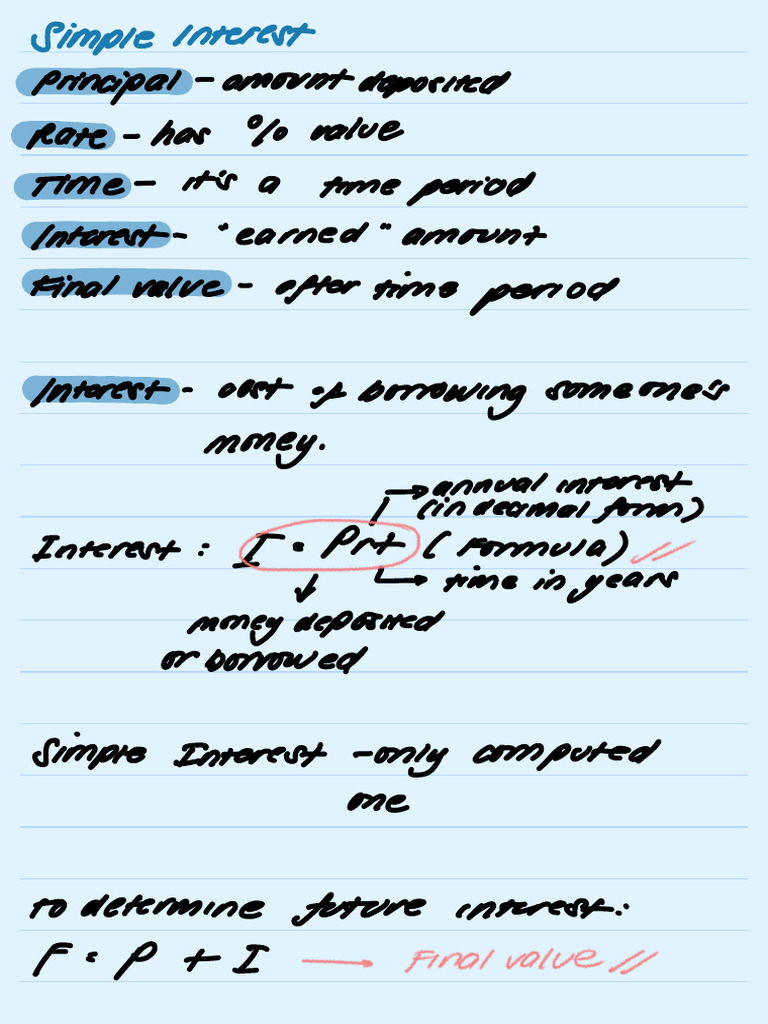 Simple Interest
Principal - amount deposited
Rate - has % value
Time - it's a time period
Interest - "earned" amount
Final value - after time period
Interest - cost of borrowing someone's
money.
annual interest
(in decimal form)
Interest : I = Prt (Formula)
time in years
money deposited
or borrowed
Simple Interest - only computed
one
to determine future interest:
F = P + I → Final value